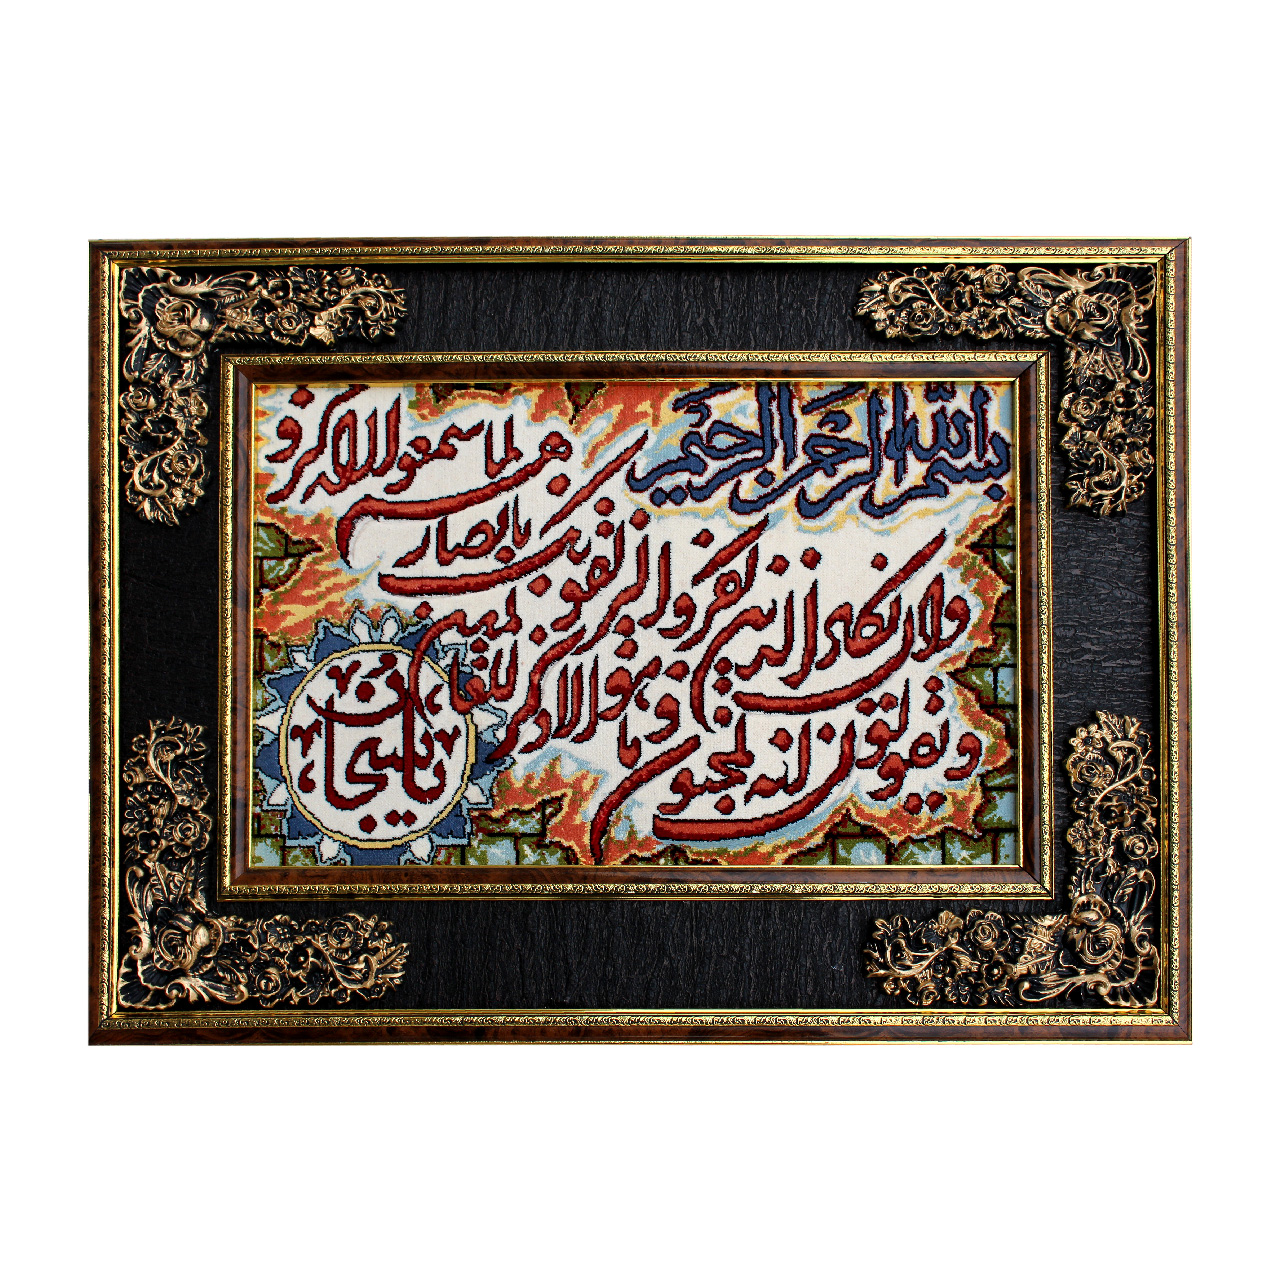 بسم الله الرحمن الرحیم
وان یکاد الذین کفروا لیزلقونک بابصارهم لما سمعوا الذکر و
و یقولون انه لمجنون و ما هو الا ذکر للعالمین